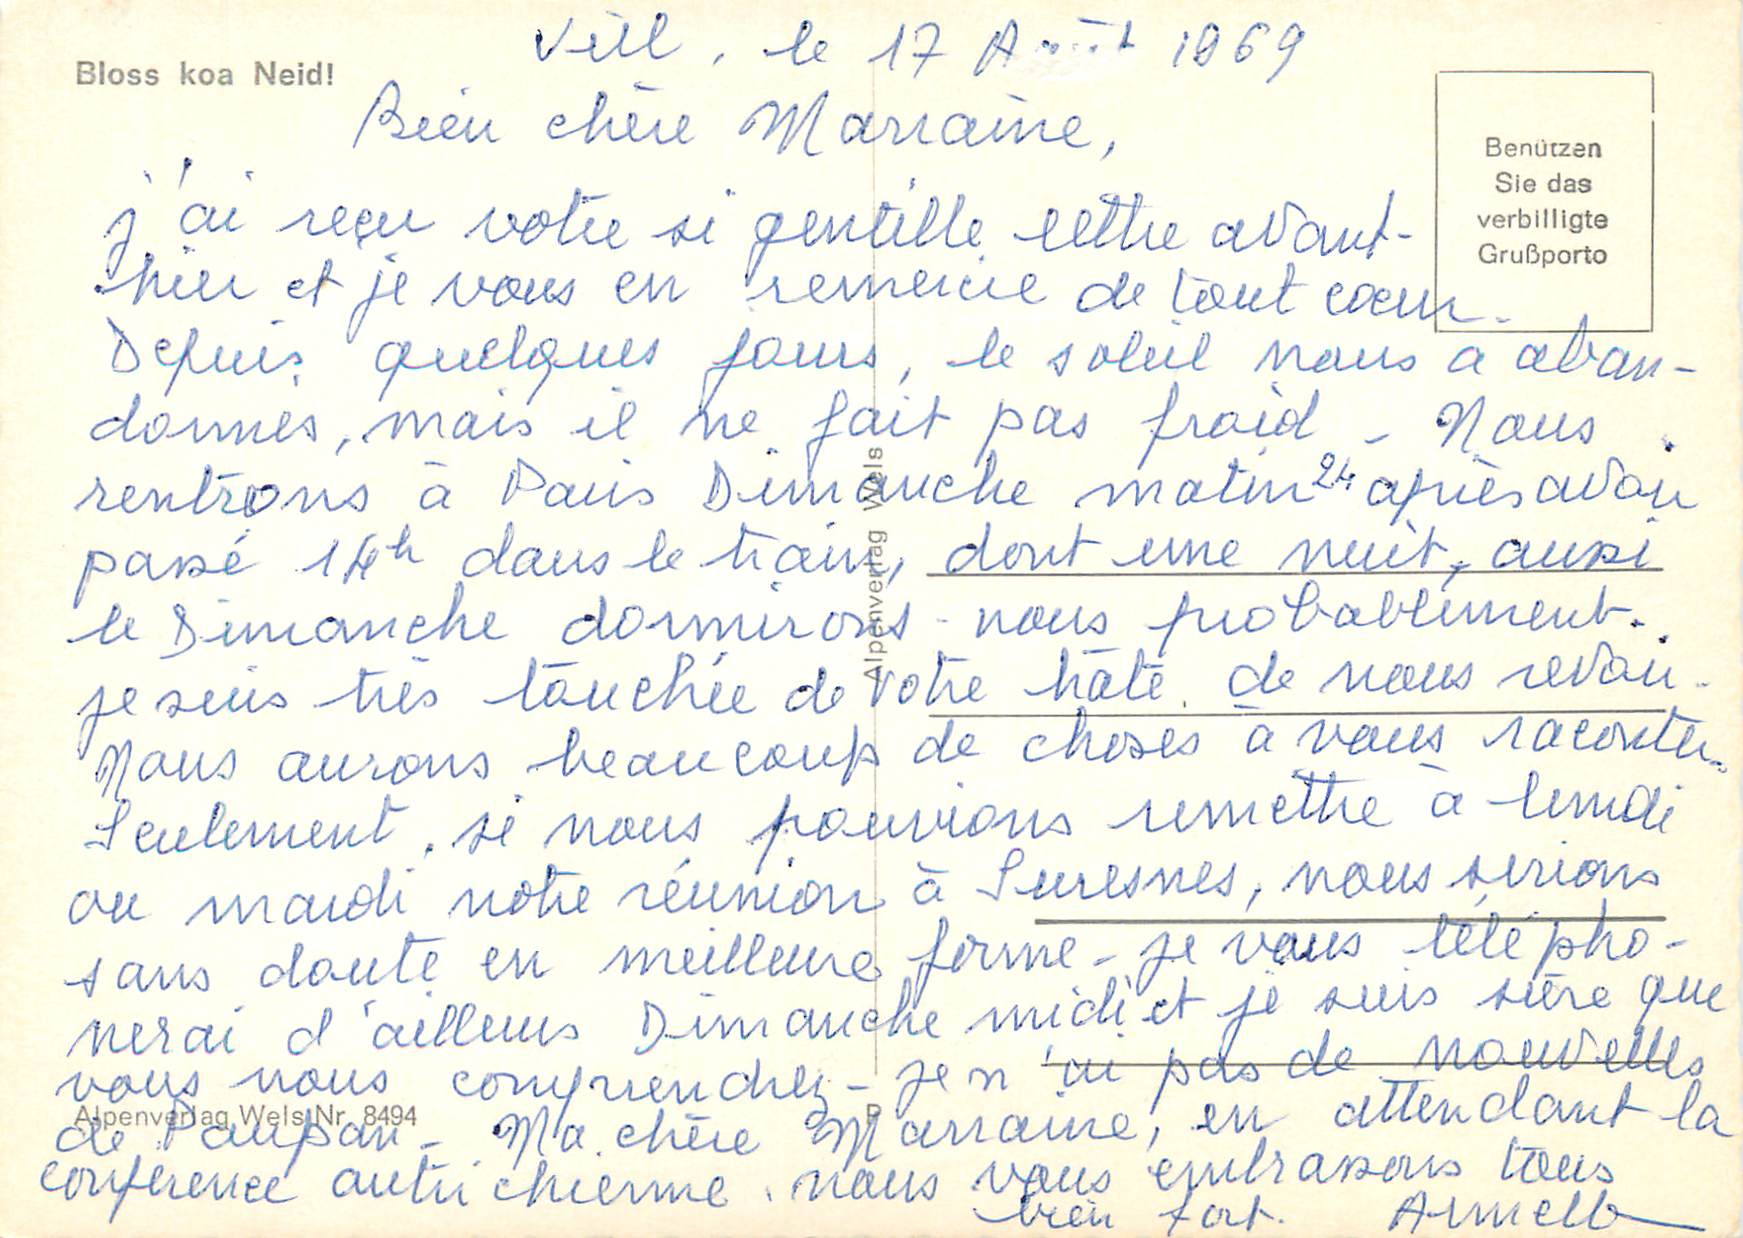 Vill, le 17 Août 1969
Bloss koa Neid!
Bien chère Marraine,
Benützen
Sie das
verbilligte
Grußporto
j'ai reçu votre si gentille lettre avant-
hier et je vous en remercie de tout cœur.
Depuis quelques jours, le soleil nous a aban-
donnés, mais il ne fait pas froid - Nous
rentrons à Paris Dimanche matin 24 après avoir
passé 14h dans le train, dont une nuit, aussi
le Dimanche dormirons-nous probablement.
je suis très touchée de votre hâte de nous revoir.
Nous aurons beaucoup de choses à vous raconter.
Seulement, si nous pouvions remettre à lundi
ou mardi notre réunion à Suresnes, nous serions
sans doute en meilleure forme - je vous télépho-
nerai d'ailleurs Dimanche midi et je suis sûre que
vous nous comprendrez - je n'ai pas de nouvelles
de - Ma chère Marraine, en attendant la
conférence autrichienne, nous vous embrassons tous
bien fort. Armelle
Alpenverlag Wels
Alpenverlag Wels Nr. 8494
P